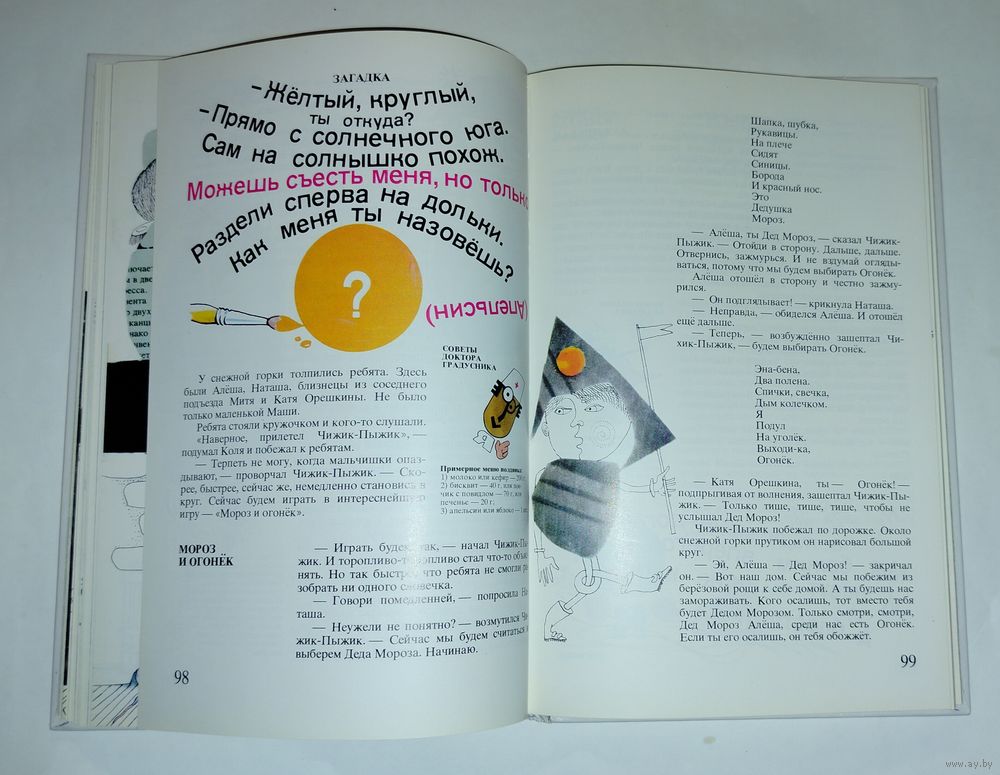 ЗАГАДКА
-Жёлтый, круглый,
ты откуда?
-Прямо с солнечного юга.
Сам на солнышко похож.
Можешь съесть меня, но только
Раздели сперва на дольки.
Как меня ты назовёшь?
?
(Апельсин)
У снежной горки толпились ребята. Здесь
были Алёша, Наташа, близнецы из соседнего
подъезда Митя и Катя Орешкины. Не было
только маленькой Маши.
Ребята стояли кружочком и кого-то слушали.
«Наверное, прилетел Чижик-Пыжик», —
подумал Коля и побежал к ребятам.
— Терпеть не могу, когда мальчишки опаз-
дывают, — проворчал Чижик-Пыжик. — Ско-
рее, быстрее, сейчас же, немедленно становись в
круг. Сейчас будем играть в интереснейшую
игру — «Мороз и огонёк».
СОВЕТЫ
ДОКТОРА
ГРАДУСНИКА
Примерное меню полдника:
1) молоко или кефир — 200 г
2) бисквит — 40 г. или
чик с повидлом — 70 г. или
печенье — 20 г.
3) апельсин или яблоко — 1 шт.
МОРОЗ
И ОГОНЁК
— Играть будем так, — начал Чижик-Пы-
жик. И торопливо-торопливо стал что-то объяс-
нять. Но так быстро, что ребята не смогли ра-
зобрать ни одного словечка.
— Говори помедленней, — попросила На-
таша.
— Неужели не понятно? — возмутился Чи-
жик-Пыжик. — Сейчас мы будем считаться и
выберем Деда Мороза. Начинаю.
98
Шапка, шубка,
Рукавицы.
На плече
Сидят
Синицы.
Борода
И красный нос.
Это
Дедушка
Мороз.
— Алёша, ты Дед Мороз, — сказал Чижик-
Пыжик. — Отойди в сторону. Дальше, дальше.
Отвернись, зажмурься. И не вздумай огляды-
ваться, потому что мы будем выбирать Огонёк.
Алёша отошёл в сторону и честно зажму-
рился.
— Он подглядывает! — крикнула Наташа.
— Неправда, — обиделся Алёша. И отошёл
ещё дальше.
— Теперь, — возбуждённо зашептал Чи-
хик-Пыжик, — будем выбирать Огонёк.
Эна-бена,
Два полена.
Спички, свечка,
Дым колечком.
Я
Подул
На уголёк.
Выходи-ка,
Огонёк.
— Катя Орешкина, ты — Огонёк! —
подпрыгивая от волнения, зашептал Чижик-Пы-
жик. — Только тише, тише, тише, чтобы не
услышал Дед Мороз!
Чижик-Пыжик побежал по дорожке. Около
снежной горки прутиком он нарисовал большой
круг.
— Эй, Алёша — Дед Мороз! — закричал
он. — Вот наш дом. Сейчас мы побежим из
берёзовой рощи к себе домой. А ты будешь нас
замораживать. Кого осалишь, тот вместо тебя
будет Дедом Морозом. Только смотри, смотри,
Дед Мороз Алёша, среди нас есть Огонёк.
Если ты его осалишь, он тебя обожжёт.
99
www.ay.by